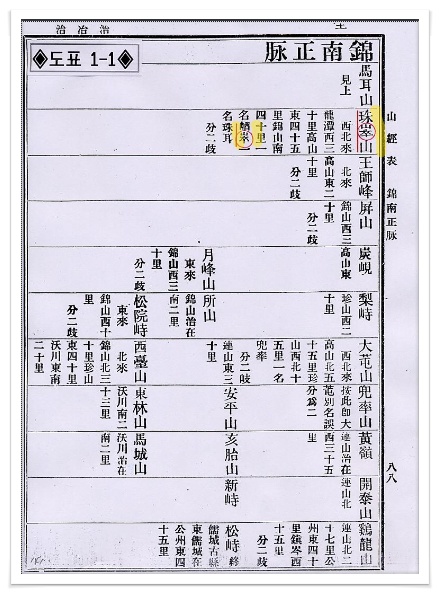 ◈도표 1-1◈
錦南正脉
山經表 錦南正脉
八八
馬耳山
見上
西北來
龍潭西三
十里高山
東四十五
里錦山南
四十里一
名珠耳
分二歧
王師峰
北來
高山東二
十里
分二歧
屏山
錦山西三
十里
分二歧
炭峴
高山東
月峰山
東來
錦山西三
十里
分二歧
所山
錦山治在
南二里
梨峙
珍山西二
十里
松院峙
東來
錦山西十
里
分二歧
大芚山
西北來
高山北五
十五里珍
山西北十
五里一名
兜率
分二歧
安平山
連山東三
十里
西臺山
北來
錦山北三
十里珍山
東四十里
沃川東南
二十里
兜率山
按此即大
芚別名誤
分爲二
東林山
沃川南二
十三里
黃嶺
連山治在
西三十五
里
亥胎山
馬城山
沃川治在
南二里
開泰山
連山北
新峙
鷄龍山
連山北二
十七里公
州東四十
里鎭岑西
十五里
分二歧
松峙
終
儒城古縣
東儒城在
公州東四
十五里